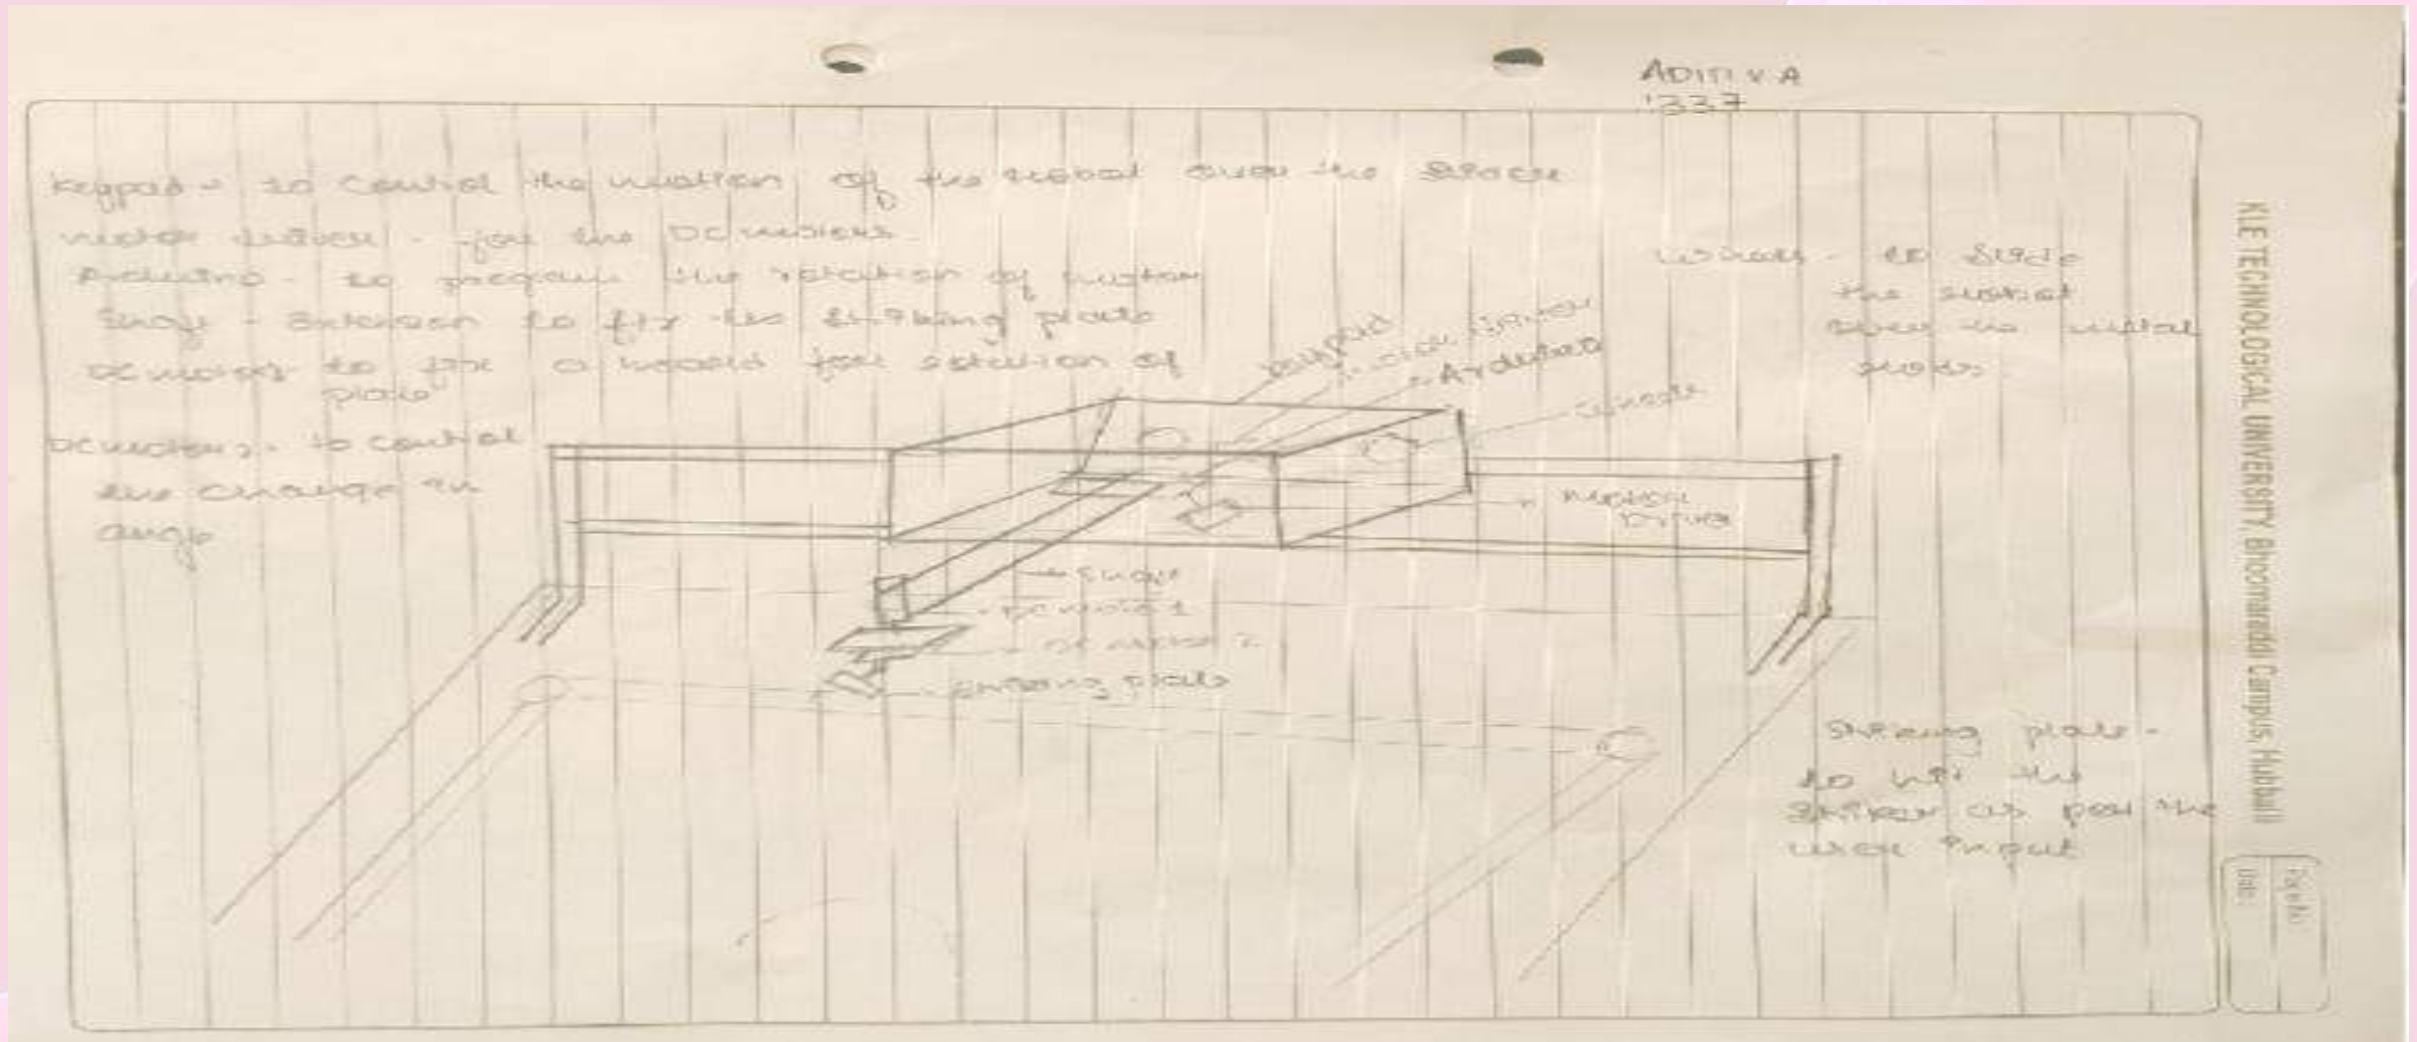 ADITI V A
1337
Keypad - to control the motion of the robot over the
motor driver - for the DC motors
Arduino - to program the rotation of motor
Shaft - Extension to fix the striking plate
DC motor to fix a board for rotation of
plate
DC motors - to control
the change in
angle
wheels - to slide
the robot
over the metal
rods
keypad
motor driver
Arduino
wheels
motor
Driver
Shaft
DC motor 1
DC motor 2
Striking plate
Striking plate -
to hit the
striker as per the
user input
KLE TECHNOLOGICAL UNIVERSITY, Bhoomaraddi Campus, Hubballi
Page No
Date: